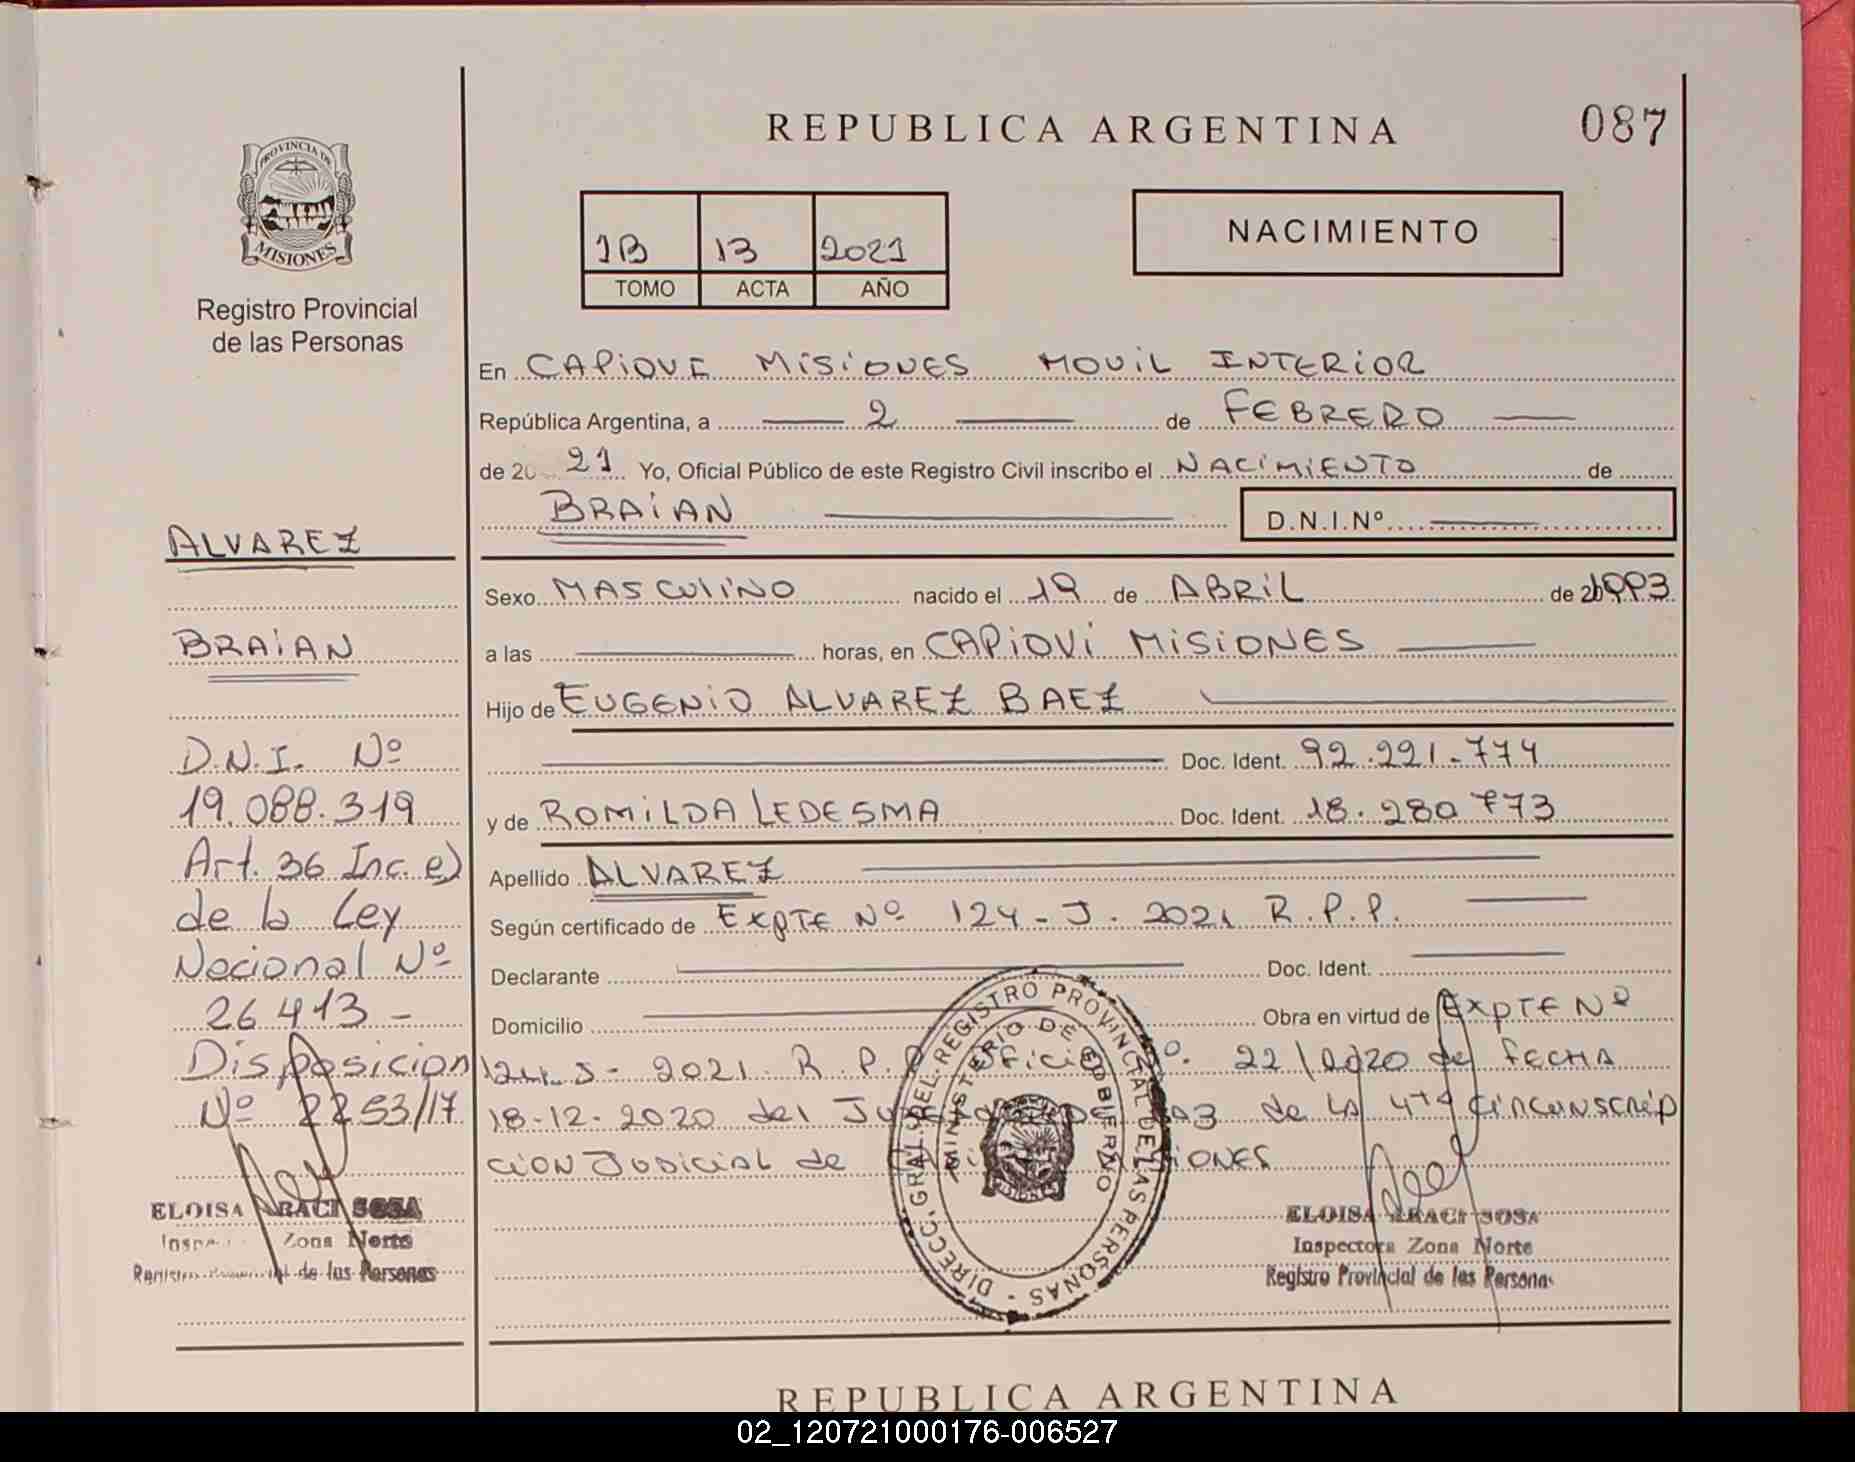 REPUBLICA ARGENTINA
087
PROVINCIA DE
MISIONES
Registro Provincial
de las Personas
1B 13 2021
TOMO ACTA AÑO
NACIMIENTO
En CAPIOVI MISIONES MOVIL INTERIOR
República Argentina, a 2 de FEBRERO
de 20 21 Yo, Oficial Público de este Registro Civil inscribo el NACIMIENTO de
BRAIAN D.N.I.Nº
Sexo MASCULINO nacido el 19 de ABRIL de 1993
a las horas, en CAPIOVI MISIONES
Hijo de EUGENIO ALVAREZ BAEZ
Doc. Ident. 92.221.774
y de ROMILDA LEDESMA Doc. Ident. 18.280 773
Apellido ALVAREZ
Según certificado de EXPTE Nº 124-J. 2021 R.P.P.
Declarante Doc. Ident.
Domicilio Obra en virtud de EXPTE Nº
124-J- 2021 R.P.P. Oficio Nº. 22/2020 de FECHA
18-12-2020 del de LA 4ta CIRCUNSCRIP
CION JUDICIAL de MISIONES
ALVAREZ
BRAIAN
D.N.I. Nº
19.088.319
Art. 36 Inc. e)
de la Ley
Nacional Nº
26 413 -
Disposicion
Nº 2253/17
ELOISA ARACI SOSA
Zona Norte
de las Personas
DIRECC. GRAL. DEL REGISTRO PROVINCIAL DE LAS PERSONAS -
MINISTERIO DE GOBIERNO
ELOISA ARACI SOSA
Inspectora Zona Norte
Registro Provincial de las Personas
REPUBLICA ARGENTINA
02_120721000176-006527